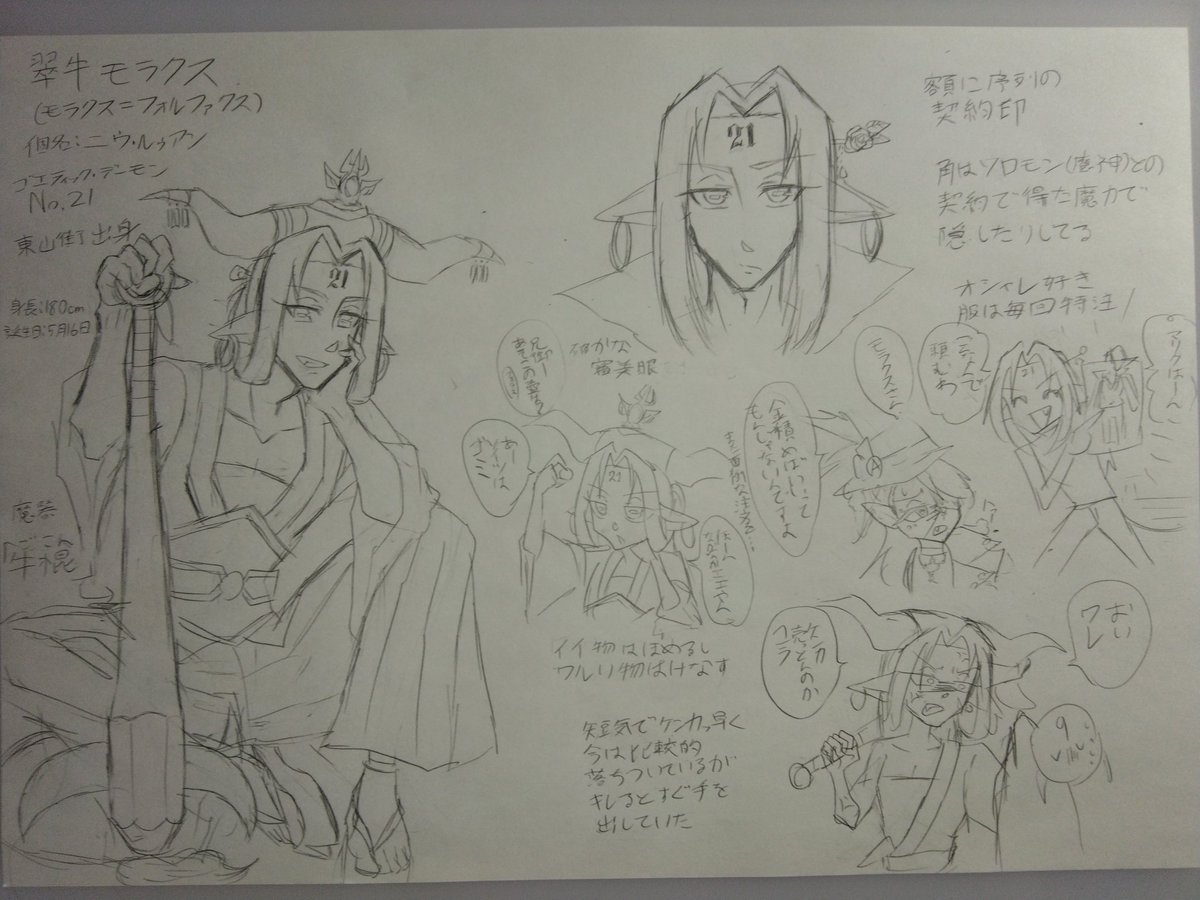 翠牛モラクス
(モラクス=フォルファクス)
個名:ニウ・ルゥアン
ゴエティック・デーモン
No.21
東山街出身
身長:180cm
誕生日:5月16日
魔器
「牛棍」
21
21
額に序列の
契約印
角はソロモン(魔神)との
契約で得た魔力で
隠したりしてる
オシャレ好き
服は毎回特注!
確かな
審美眼
兄御ー
ありは
イイっす
ゴミ
21
イイ物はほめるし
ワルい物はけなす
モラクスさん
金積めばいいって
もんじゃないんですよ
A
これで
頼むわ
21
アリクはーん
短気でケンカっ早く
今は比較的
落ちついているが
キレるとすぐ手を
出していた
ケンカ
売っとんのか
コラ
おい
ワレ
9